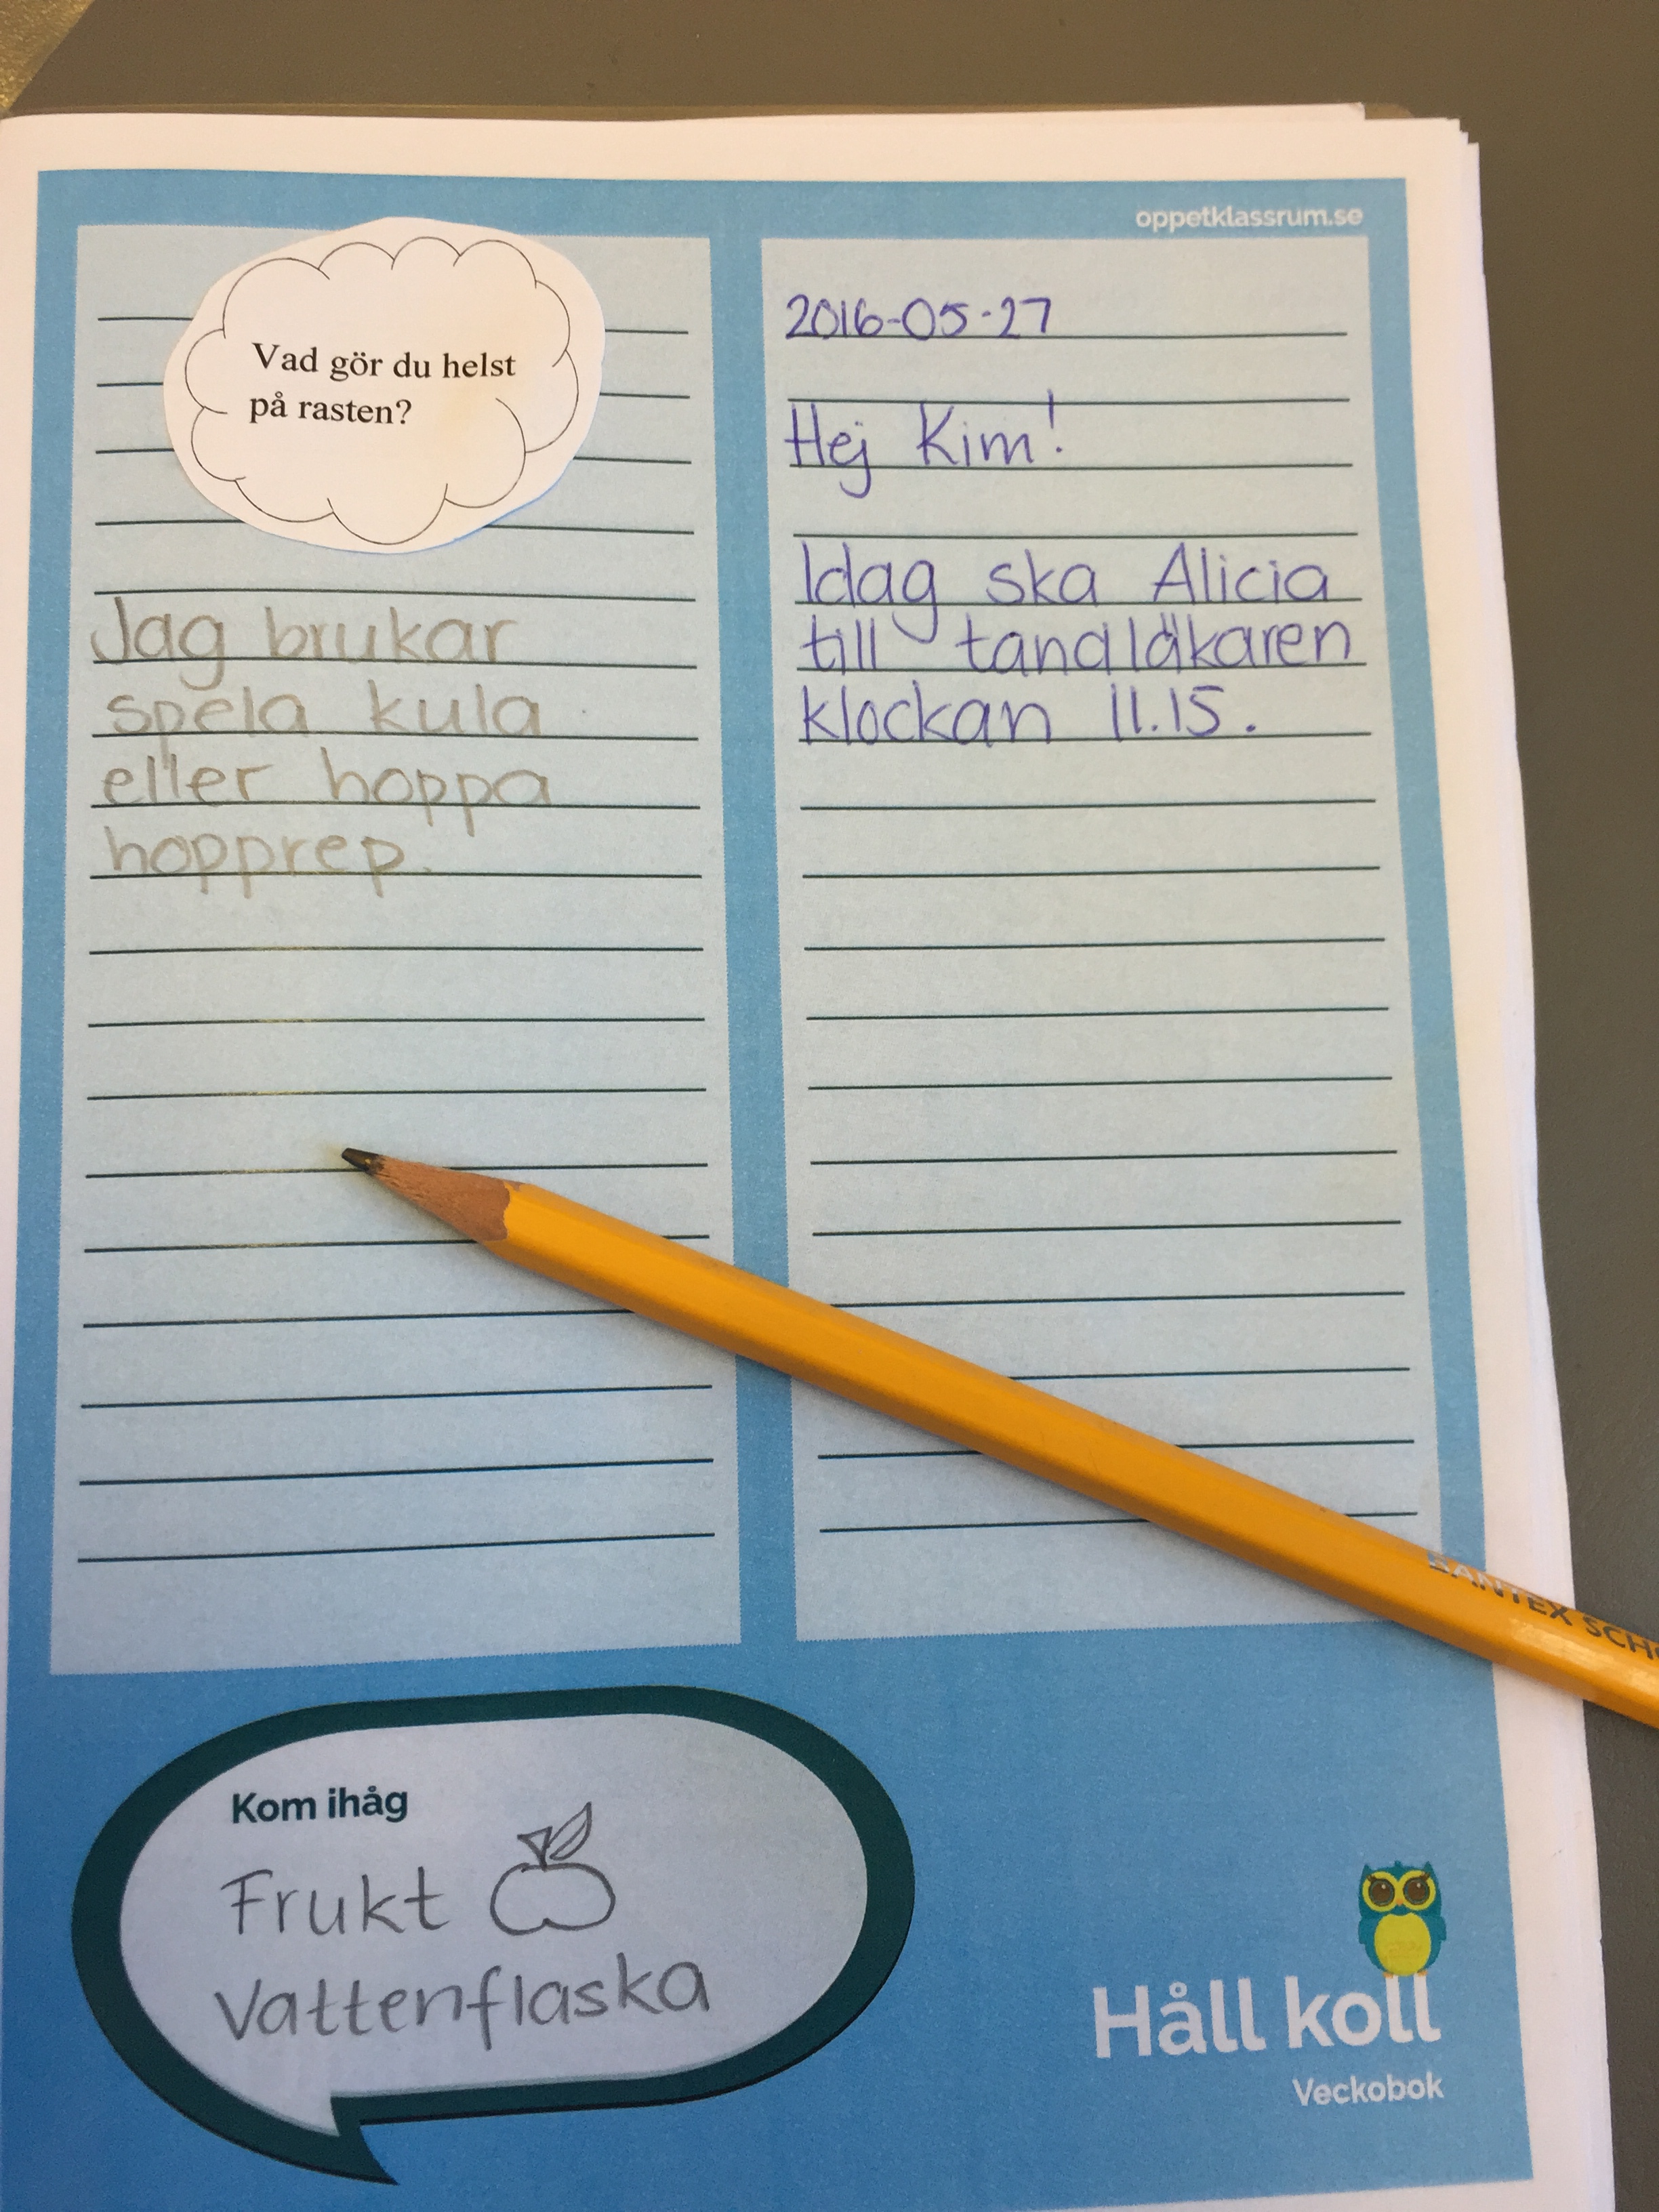 oppetklassrum.se
Vad gör du helst
på rasten?
Jag brukar
spela kula
eller hoppa
hopprep.
2016-05-27
Hej Kim!
Idag ska Alicia
till tandläkaren
klockan 11.15.
BANTEX
Kom ihåg
Frukt
Vattenflaska
Håll koll
Veckobok